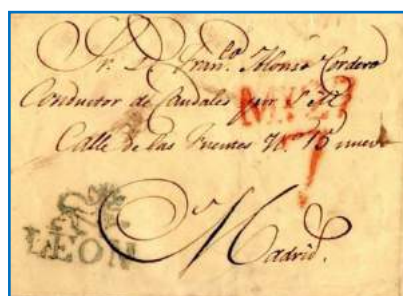 Sr. D. Fran.co Alonso Cordero
Conductor de Caudales por S.
Calle de las Fuentes N.o 15 nuevo
en Madrid.
LEON